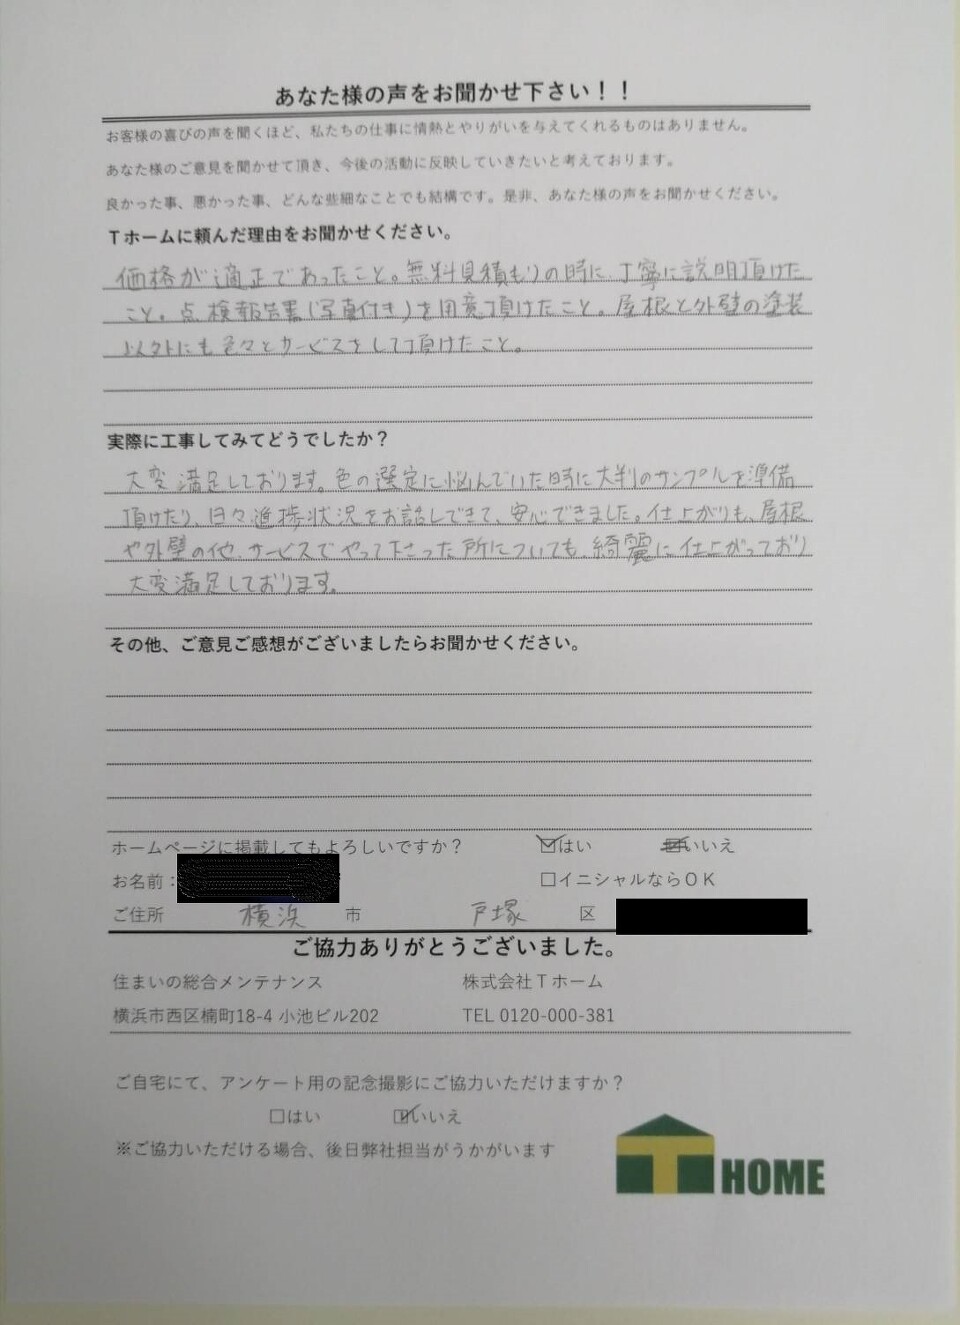 あなた様の声をお聞かせ下さい！！
お客様の喜びの声を聞くほど、私たちの仕事に情熱とやりがいを与えてくれるものはありません。
あなた様のご意見を聞かせて頂き、今後の活動に反映していきたいと考えております。
良かった事、悪かった事、どんな些細なことでも結構です。是非、あなた様の声をお聞かせください。
Ｔホームに頼んだ理由をお聞かせください。
価格が適正であったこと。無料見積もりの時に、丁寧に説明頂けた
こと。点検報告書(写真付き)を用意頂けたこと。屋根と外壁の塗装
以外にも色々とサービスをして頂けたこと。
実際に工事してみてどうでしたか？
大変満足しております。色の選定に悩んでいた時に大判のサンプルを準備
頂けたり、日々進捗状況をお話しできて、安心できました。仕上がりも、屋根
や外壁の他、サービスでやって下さった所についても、綺麗に仕上がっており
大変満足しております。
その他、ご意見ご感想がございましたらお聞かせください。
ホームページに掲載してもよろしいですか？ ☑はい いいえ
お名前： □イニシャルならＯＫ
ご住所 横浜 市 戸塚 区
ご協力ありがとうございました。
住まいの総合メンテナンス 株式会社Ｔホーム
横浜市西区楠町18-4 小池ビル202 TEL 0120-000-381
ご自宅にて、アンケート用の記念撮影にご協力いただけますか？
□はい ☑いいえ
※ご協力いただける場合、後日弊社担当がうかがいます
T HOME